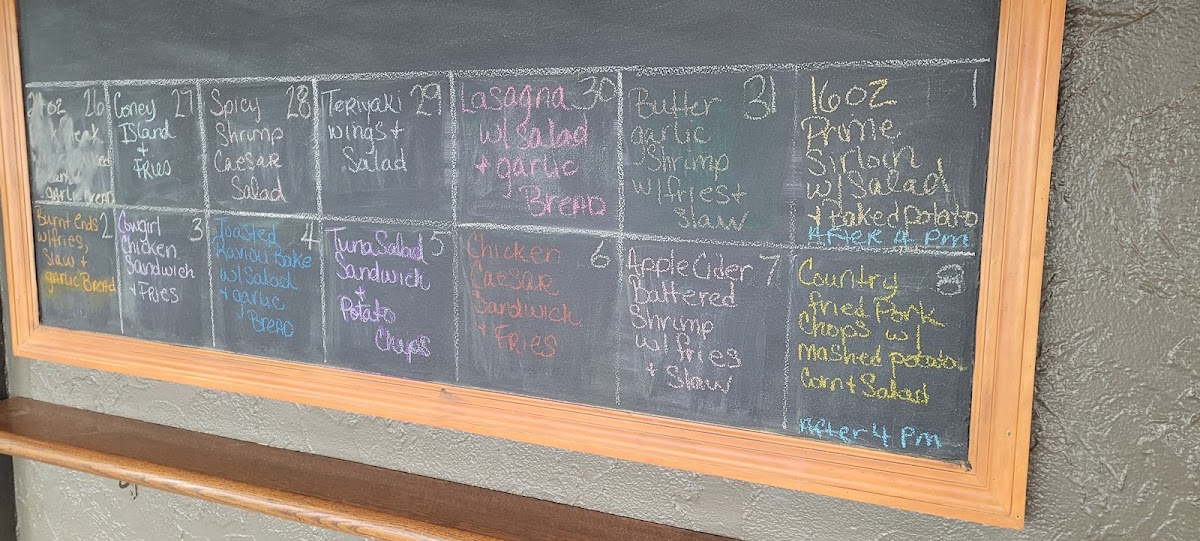 26
garlic Bread
Coney 27
Island
+
Fries
Spicy 28
Shrimp
Caesar
Salad
Teriyaki 29
wings +
Salad
Lasagna 30
w/ Salad
+ garlic
Bread
Butter 31
garlic
Shrimp
w/fries +
Slaw
16oz 1
Prime
Sirloin
w/ Salad
+ Baked potato
After 4 pm
Burnt Ends 2
w/fries,
Slaw +
garlic Bread
Cowgirl 3
Chicken
Sandwich
+ Fries
Toasted 4
Ravioli Bake
w/ Salad
+ garlic
Bread
Tuna Salad 5
Sandwich
+
Potato
Chips
Chicken 6
Caesar
Sandwich
+ Fries
Apple Cider 7
Battered
Shrimp
w/ fries
+ Slaw
Country 8
fried Pork
Chops w/
mashed potato
Corn + Salad
After 4 pm